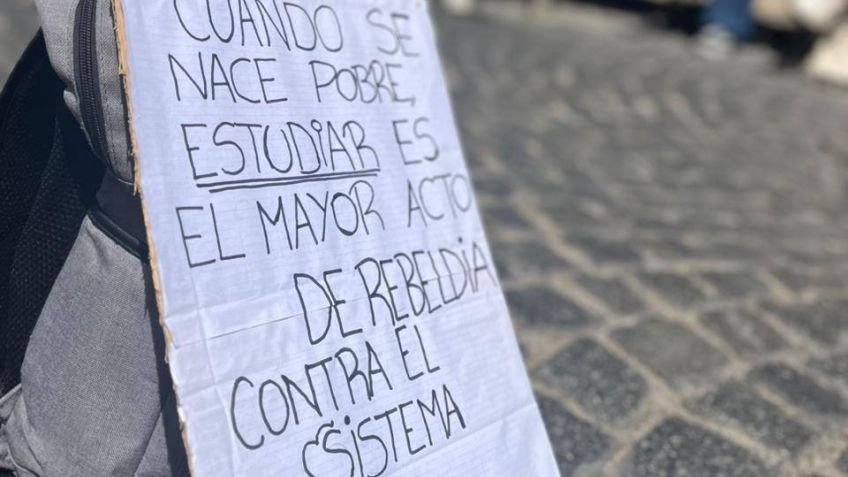 CUANDO SE
NACE POBRE,
ESTUDIAR ES
EL MAYOR ACTO
DE REBELDIA
CONTRA EL
SISTEMA